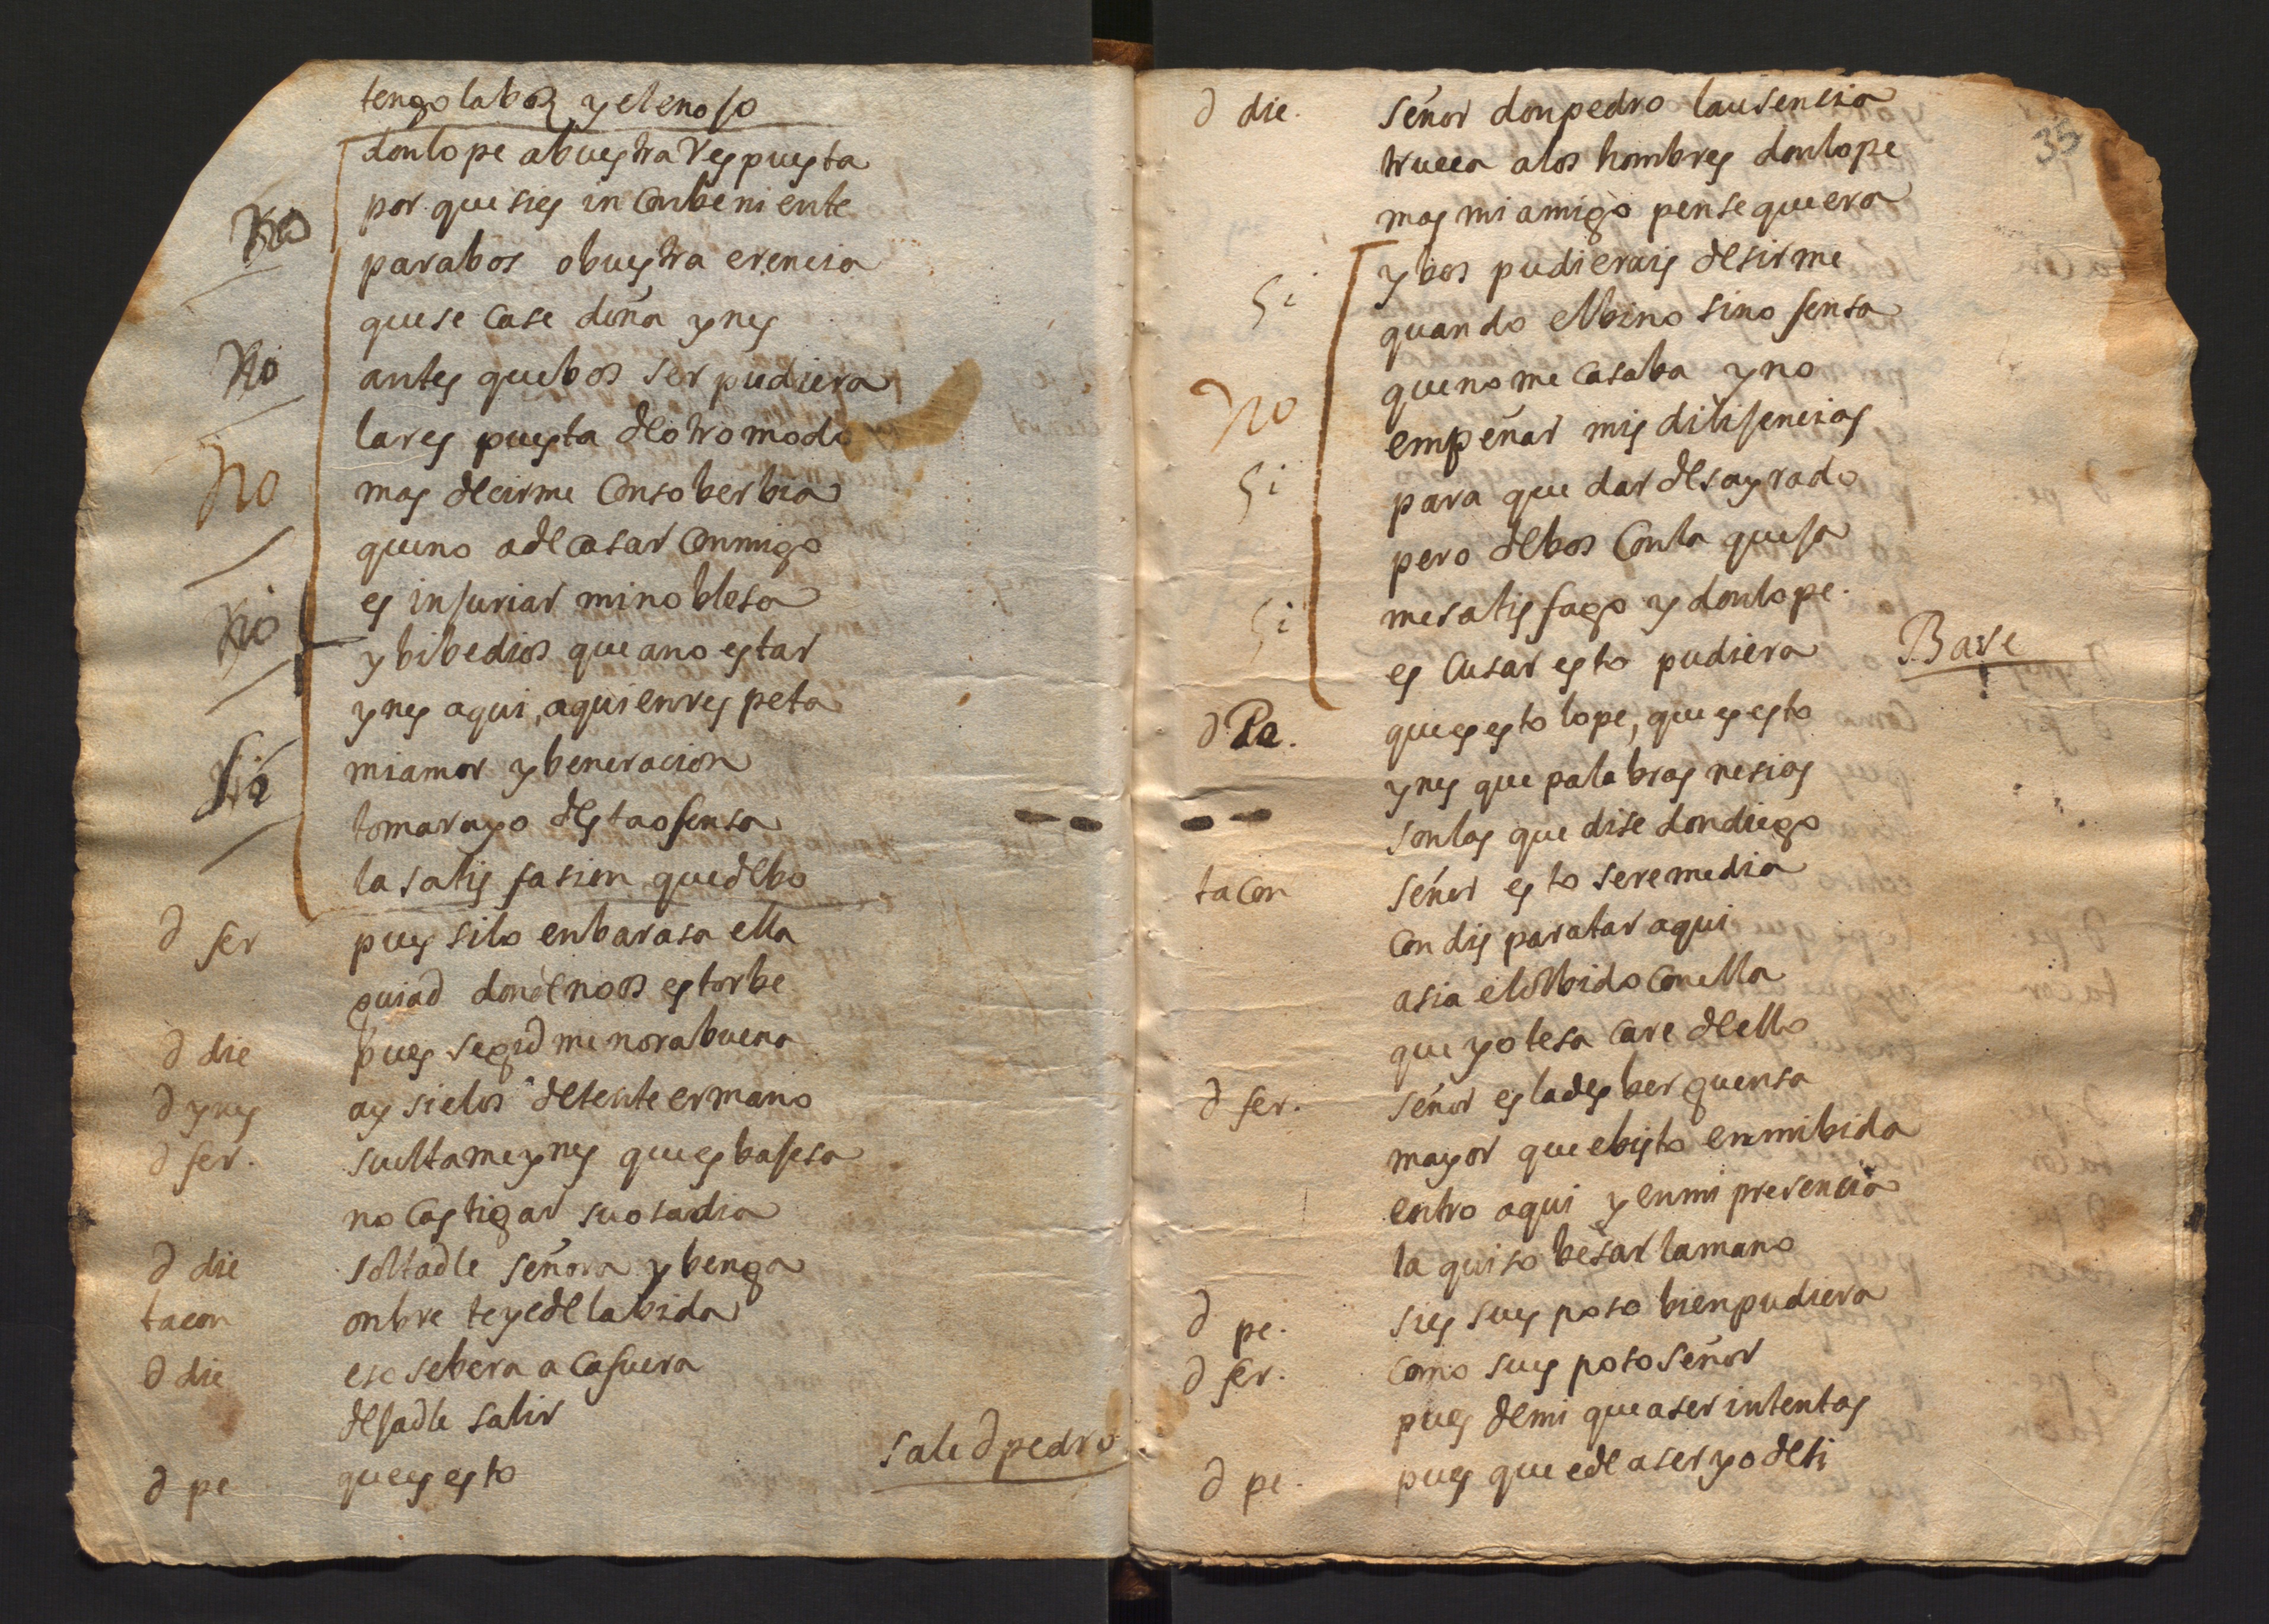 tengo labor y el enojo
don lope a buestra respuesta
no por que si es inconbeniente
para bos o buestra erencia
que se case doña ynes
no antes que bos ser pudiera
la respuesta de otro modo
no mas decirme con soberbia
que no a de casar conmigo
es injuriar mi noblesa
no y bibe dios que a no estar
ynes aqui, a quien respeta
si mi amor y beneracion
tomara yo desta ofensa
la satisfasion que debo
d fer pues si lo enbarasa ella
guiad donde no os estorbe
d die pues segidme norabuena
d ynes ay sielos detente ermano
d fer. sueltame ynes que es bajesa
no castigar su osadia
d die soltadle señora y benga
tacon onbre teye de la bida
d die eso se bera aca fuera
dejadle salir
sale d pedro
d pe que es esto
35
d die. señor don pedro la usencia
trueca a los hombres don lope
mas mi amigo pense que era
si y bos pudierais desirme
quando el bino sino sensa
que no me casaba y no
no empeñar mis dilijencias
si para quedar desayrado
pero de bos con la queja
si me satisfago y don lope.
escusar esto pudiera Base
d Pe. que es esto lope, que es esto
ynes que palabras nesias
son las que dise don diego
tacon señor esto se remedia
con disparatar aqui
asia el olbido con ella
que yo le sacare de ello
d fer. señor es la desberguensa
mayor que e bisto en mi bida
entro aqui y en mi presencia
la quiso besar la mano
d pe. si es su esposo bien pudiera
d fer. como su esposo señor
pues de mi que aser intentas
d pe. pues que e de aser yo de ti